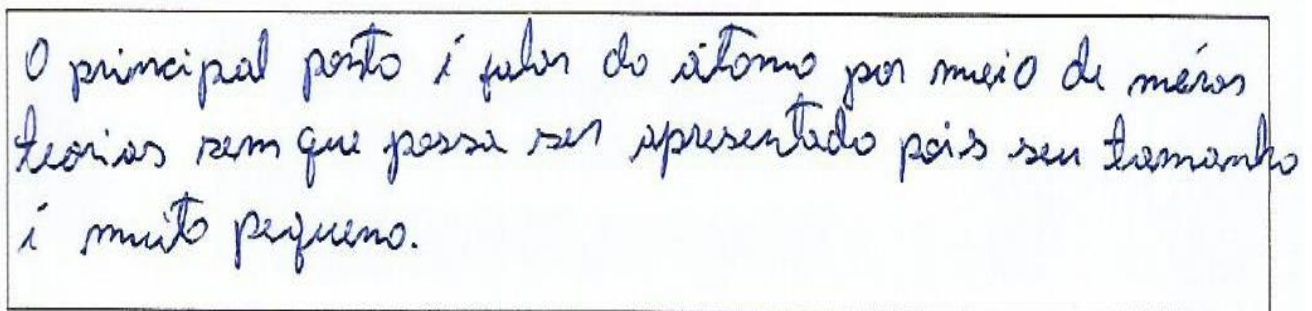 O principal ponto é falar do átomo por meio de méras
teorias sem que possa ser apresentado pois seu tamanho
é muito pequeno.